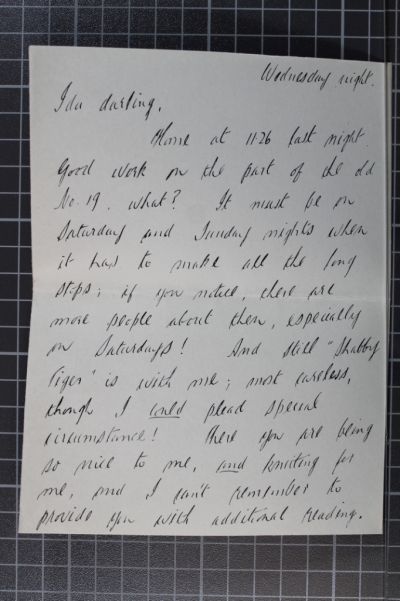 Wednesday night.
Ida darling,
Home at 11.26 last night.
Good work on the part of the old
No. 19. what? It must be on
Saturday and Sunday nights when
it has to make all the long
stops; if you notice, there are
more people about then, especially
on Saturdays! And still "Shabby
Tiger" is with me; most careless,
though I could plead special
circumstance! There you are being
so nice to me, and knitting for
me, and I can't remember to
provide you with additional reading.